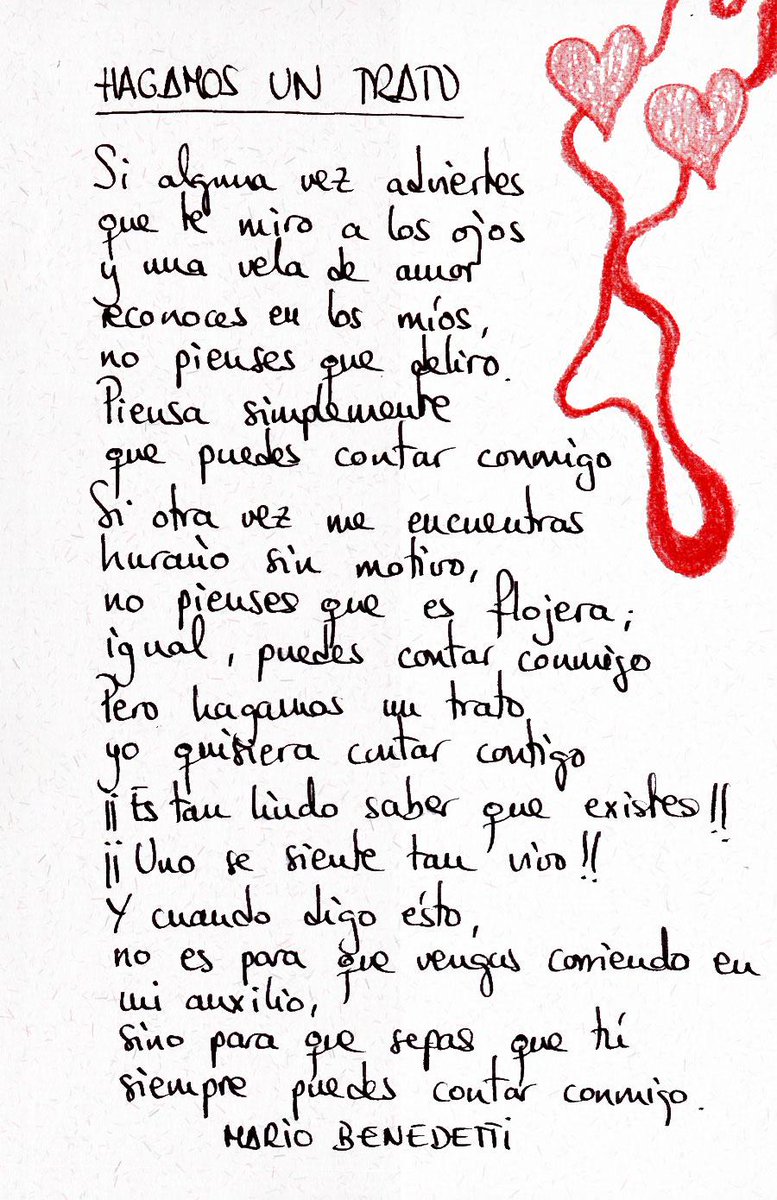 HAGAMOS UN TRATO
Si alguna vez adviertes
que te miro a los ojos
y una vela de amor
reconoces en los míos,
no pienses que deliro.
Piensa simplemente
que puedes contar conmigo
Si otra vez me encuentras
huraño sin motivo,
no pienses que es flojera;
igual, puedes contar conmigo
Pero hagamos un trato,
yo quisiera contar contigo
¡¡Es tan lindo saber que existes!!
¡¡Uno se siente tan vivo!!
Y cuando digo ésto,
no es para que vengas corriendo en
mi auxilio,
sino para que sepas que tú
siempre puedes contar conmigo.
MARIO BENEDETTI